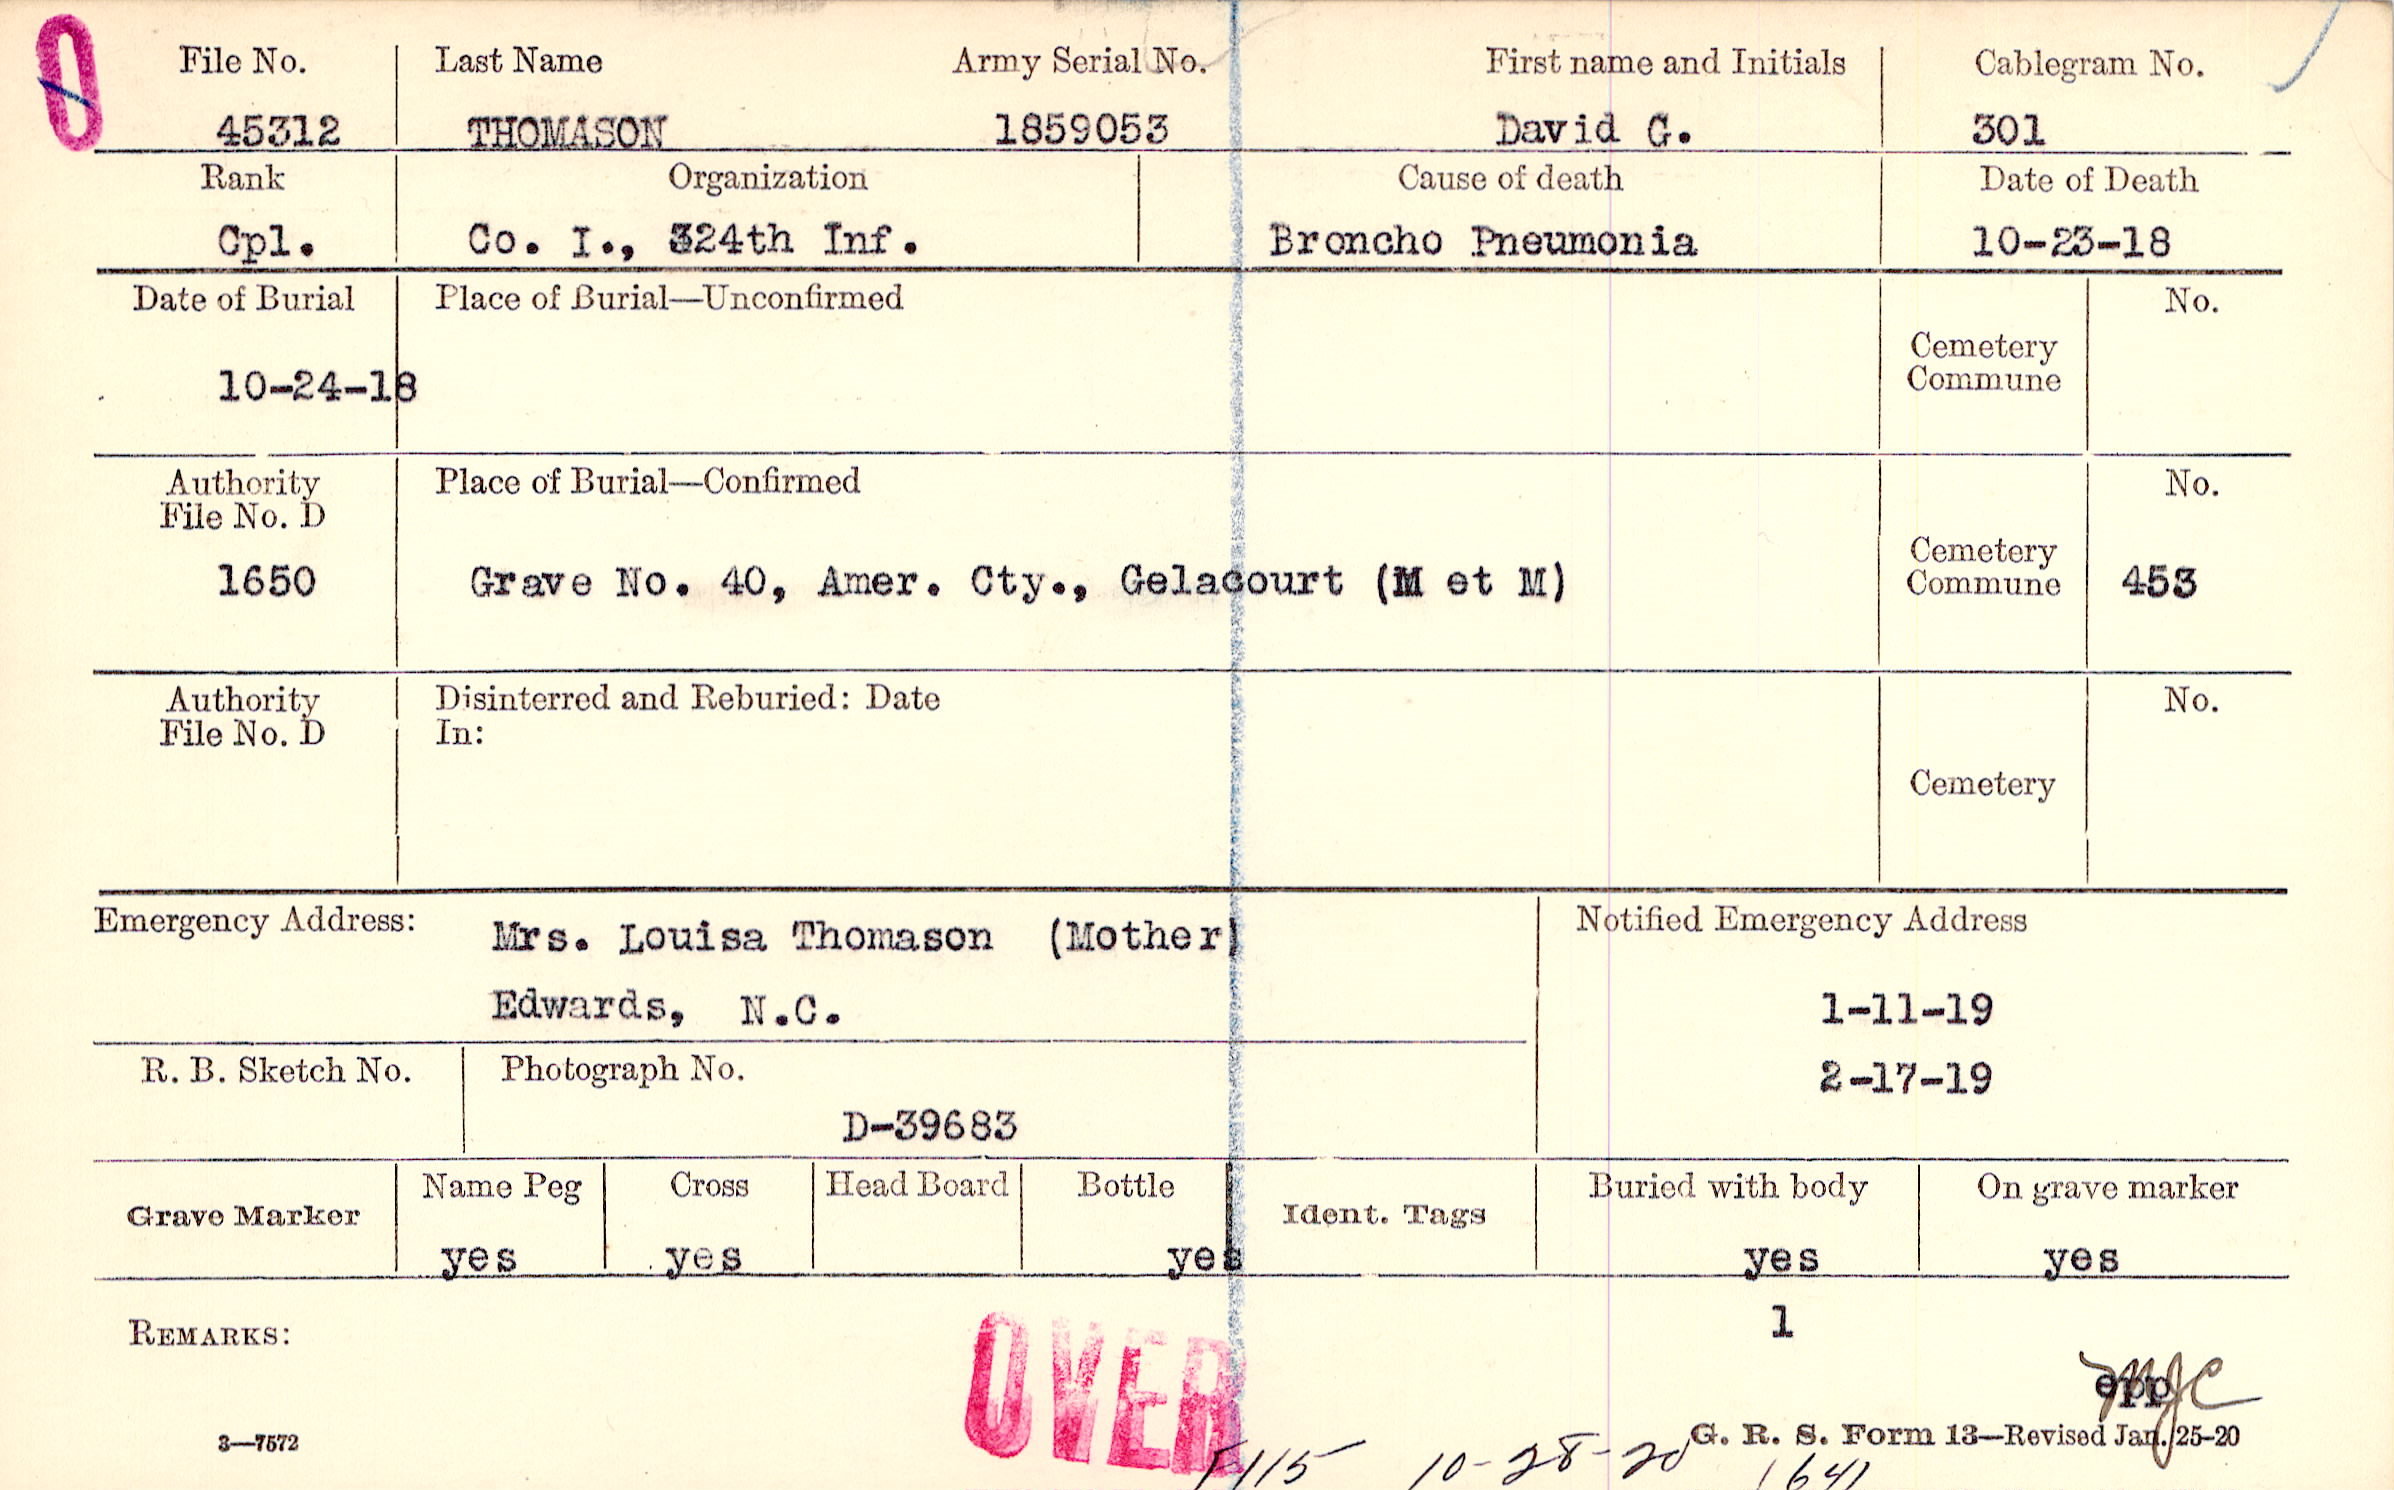 0
File No. Last Name Army Serial No. First name and Initials Cablegram No.
45312 THOMASON 1859053 David G. 301
Rank Organization Cause of death Date of Death
Cpl. Co. I., 324th Inf. Broncho Pneumonia 10-23-18
Date of Burial Place of Burial—Unconfirmed No.
Cemetery
Commune
10-24-18
Authority Place of Burial—Confirmed No.
File No. D
Cemetery
1650 Grave No. 40, Amer. Cty., Gelacourt (M et M) Commune 453
Authority Disinterred and Reburied: Date No.
File No. D In:
Cemetery
Emergency Address: Mrs. Louisa Thomason (Mother) Notified Emergency Address
Edwards, N.C. 1-11-19
R. B. Sketch No. Photograph No. 2-17-19
D-39683
Grave Marker Name Peg Cross Head Board Bottle Ident. Tags Buried with body On grave marker
yes yes yes yes yes
REMARKS: 1
OVER
epp
3—7572 G. R. S. Form 13—Revised Jan. 25-20
10-28-20 1641